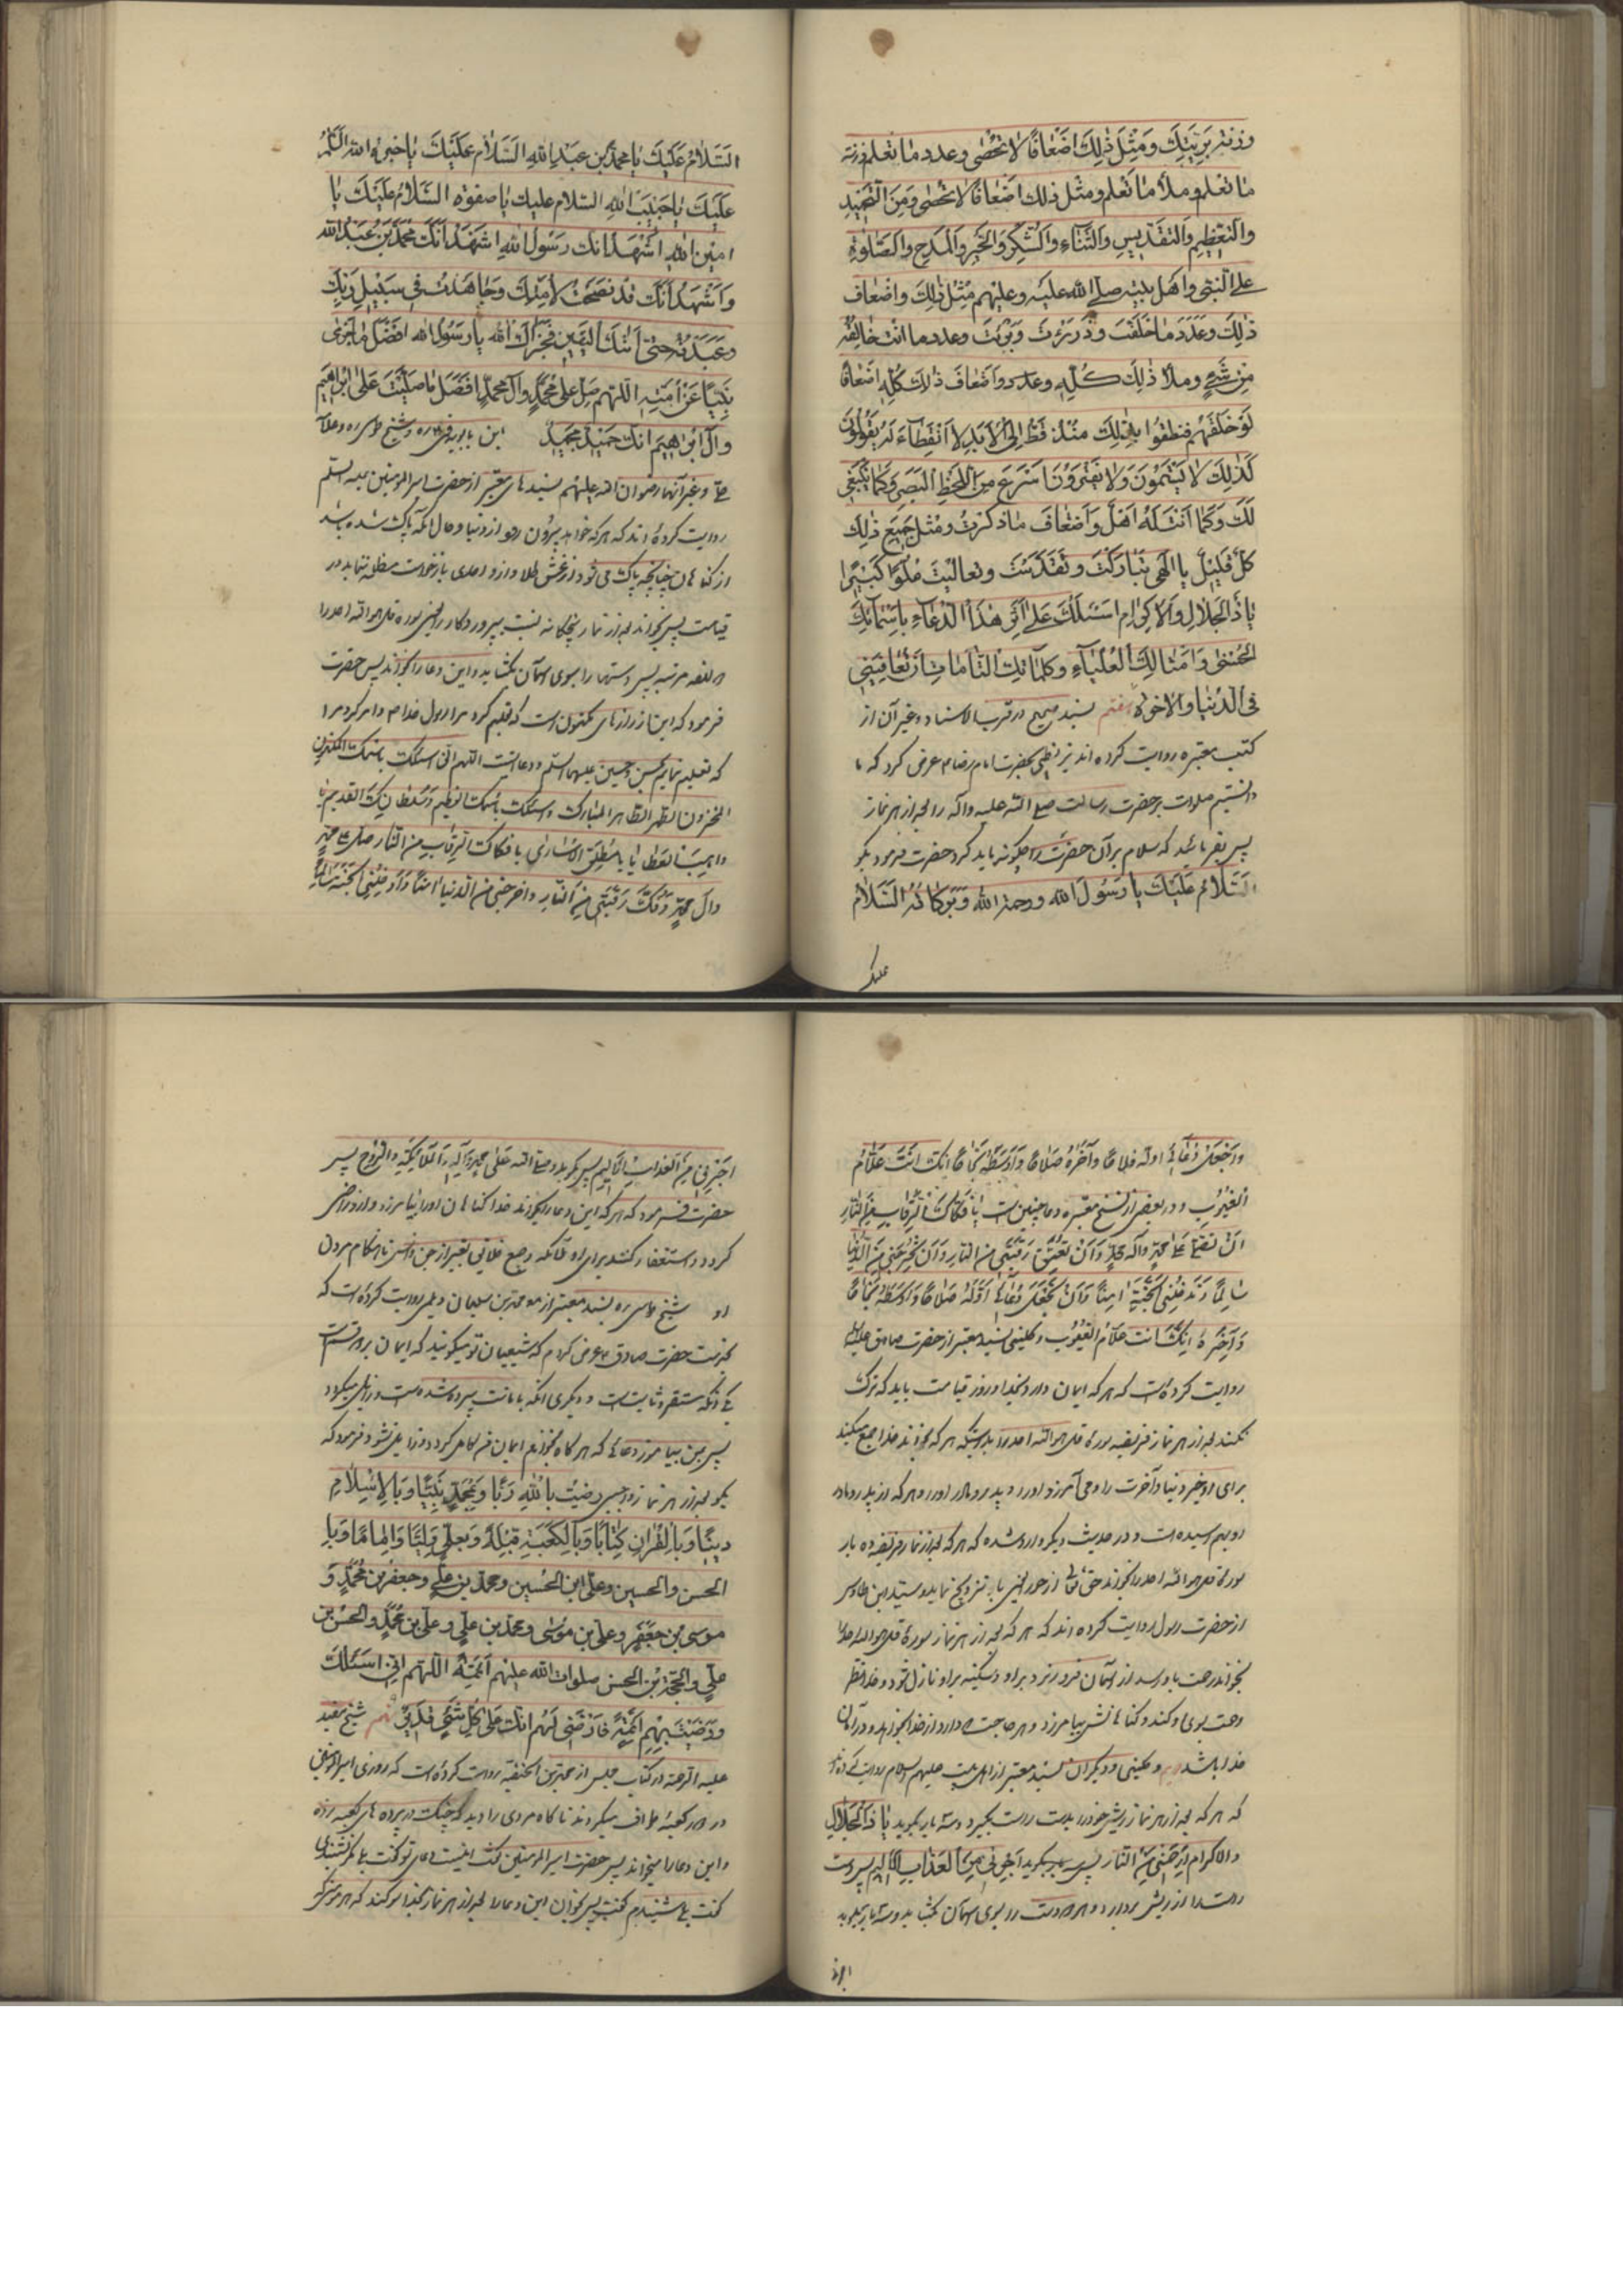 وزنة بريتك ومثل ذلك اضعافا لا تحصى وعدد ما تعلم وزنة
ما تعلم وملأ ما تعلم ومثل ذلك اضعافا لا تحصى ومن التمجيد
والتعظيم والتقديس والثناء والشكر والخير والمدح والصلوة
على النبى واهل بيته صلى الله عليه وعليهم مثل ذلك واضعاف
ذلك وعدد ما خلقت وذرئت وبرئت وعدد ما انت خالقه
من شىء وملأ ذلك كله وعدد واضعاف ذلك كله اضعافا
لو خلقتهم فنطقوا بذلك منذ قط الى الابد لا انقطاء له يقولون
كذلك لا يسئمون ولا يفترون اسرع من لحظ البصر وكما ينبغى
لك وكما انت له اهل واضعاف ما ذكرت ومثل جميع ذلك
كل قليل يا الهى تباركت وتقدست وتعاليت علوا كبيرا
يا ذا الجلال والاكرام اسئلك على اثر هذا الدعاء باسمائك
الحسنى وامثالك العلياء وكلماتك التامات ان تعافينى
فى الدنيا والاخرة هفتم بسند صحيح در قرب الاسناد وغير آن از
كتب معتبره روايت كرده اند بزنطى بحضرت امام رضا ع عرض كرد كه ما
دانستيم صلوات بر حضرت رسالت صلى الله عليه وآله را بعد از هر نماز
پس بفرمائيد كه سلام بر آن حضرت را چگونه بايد كرد حضرت فرمود بگو
السلام عليك يا رسول الله ورحمة الله وبركاته السلام
عليك
السلام عليك يا محمد بن عبد الله السلام عليك يا خيرة الله السلام
عليك يا حبيب الله السلام عليك يا صفوة السلام عليك يا
امين الله اشهد انك رسول الله اشهد انك محمد بن عبد الله
واشهد انك قد نصحت لامتك وجاهدت فى سبيل ربك
وعبدته حتى اتيك اليقين فجزاك الله يا رسول الله افضل ما جزى
نبيا عن امته اللهم صل على محمد وآل محمد افضل ما صليت على ابراهيم
وآل ابراهيم انك حميد مجيد ابن بابويه قمى ره وشيخ طوسى ره
وغير آنها رضوان الله عليهم بسندهاى معتبر از حضرت امير المومنين عليه السلم
روايت كرده اند كه هر كه خواهد بيرون رود از دنيا وحال آنكه پاك شده باشد
از گناهان چنانچه پاك مى شود از غش طلا واز او احدى بازخواست مظلمه ننمايد در
قيامت پس بخواند بعد از نماز پنجگانه نسبت پروردگار يعنى سوره قل هو الله احد را
دوازده مرتبه پس دستها را بسوى آسمان بگشايد واين دعا را بخواند پس حضرت
فرمود كه اين از رازهاى مكنون است كه تعليم كرد مرا رسول خدا ص وامر كرد مرا
كه تعليم نمايم بحسن وحسين عليهما السلم ودعا اينست اللهم انى اسئلك باسمك المكنون
المخزون الطهر الطاهر المبارك واسئلك باسمك العظيم وسلطانك القديم يا
واهب العطايا يا مطلق الاسارى يا فكاك الرقاب من النار صل على محمد
وآل محمد وفك رقبتى من النار واخرجنى من الدنيا امنا وادخلنى الجنة سالما
واجعل دعائى اوله فلاحا وآخره صلاحا واوسطه نجاحا انك انت علام
الغيوب ودر بعضى از نسخ معتبره دعا چنين است يا فكاك الرقاب من النار
ان تصلى على محمد وآل محمد وان تعتق رقبتى من النار وان تخرجنى من الدنيا
سالما وتدخلنى الجنة امنا وان تجعل دعائى اوله صلاحا واوسطه نجاحا
وآخره انك انت علام الغيوب وكلينى بسند معتبر از حضرت صادق عليه السلم
روايت كرده است كه هر كه ايمان دارد بخدا وروز قيامت بايد كه ترك
نكند بعد از هر نماز فريضه سوره قل هو الله احد را بدرستيكه هر كه بخواند خدا جمع ميكند
براى او خير دنيا وآخرت را ومى آمرزد او را وپدر ومادر او را وهر كه از پدر ومادر
او بهم رسيده است ودر حديث ديگر وارد شده كه هر كه بعد از نماز فريضه ده بار
سوره قل هو الله احد را بخواند حق تعالى از حور العين باو تزويج نمايد وسيد ابن طاوس
از حضرت رسول روايت كرده اند كه هر كه بعد از هر نماز سوره قل هو الله احد را
بخواند رحمت باو رسد از آسمان فرو ريزد بر او وسكينه بر او نازل شود وخدا نظر
رحمت بسوى او كند وگناهانش بيامرزد وهر حاجت كه دارد از خدا بخواهد ودر امان
خدا باشد وكلينى وديگران بسند معتبر از اهل بيت عليهم السلام روايت كرده اند
كه هر كه بعد از هر نماز ريش خود را بدست راست بگيرد وسه بار بگويد يا ذا الجلال
والاكرام ارحمنى من النار پس سه بار بگويد اجرنى من العذاب الاليم پس دست
راست را از ريش بردارد وهر دو دست را بسوى آسمان بگشايد وسه بار بگويد
اجرنى
اجرنى من العذاب الاليم پس بگويد وصلى الله على محمد وآله والملائكة والروح پس
حضرت فرمود كه هر كه اين دعا را بخواند خدا گناهان او را بيامرزد واز او راضى
گردد واستغفار كنند براى او ملائكه وجميع خلائق بغير از جن وانس تا هنگام مردن
او شيخ طوسى ره بسند معتبر از محمد بن سليمان ديلمى روايت كرده است كه
بخدمت حضرت صادق ع عرض كردم كه شيعيان تو ميگويند كه ايمان بر دو قسم است
يكى آنكه مستقر وثابت است وديگرى آنكه بامانت سپرده شده است وزايل ميگردد
پس بمن بياموز دعائى كه هر گاه بخوانم ايمان من كامل گردد وزايل نشود فرمود كه
بگو بعد از هر نماز واجبى رضيت بالله ربا وبمحمد نبيا وبالاسلام
دينا وبالقران كتابا وبالكعبة قبلة وبعلى وليا واماما وبا
الحسن والحسين وعلى ابن الحسين ومحمد بن على وجعفر بن محمد و
موسى بن جعفر وعلى بن موسى ومحمد بن على وعلى بن محمد والحسن بن
على والحجة بن الحسن صلوات الله عليهم ائمة اللهم انى اسئلك
ورضيت بهم ائمة فارضنى لهم انك على كل شىء قدير نهم شيخ مفيد
عليه الرحمه در كتاب مجالس از محمد بن الحنفيه روايت كرده است كه روزى امير المومنين
در دور كعبه طواف ميكردند ناگاه مردى را ديد كه چنگ در پرده هاى كعبه زده
واين دعا را ميخواند پس حضرت امير المومنين گفت اينست دعاى تو گفت بلى مگر شنيدى
گفت بلى شنيدم گفت پس بخوان اين دعا را بعد از هر نماز بخدا سوگند كه هر مومنى كه